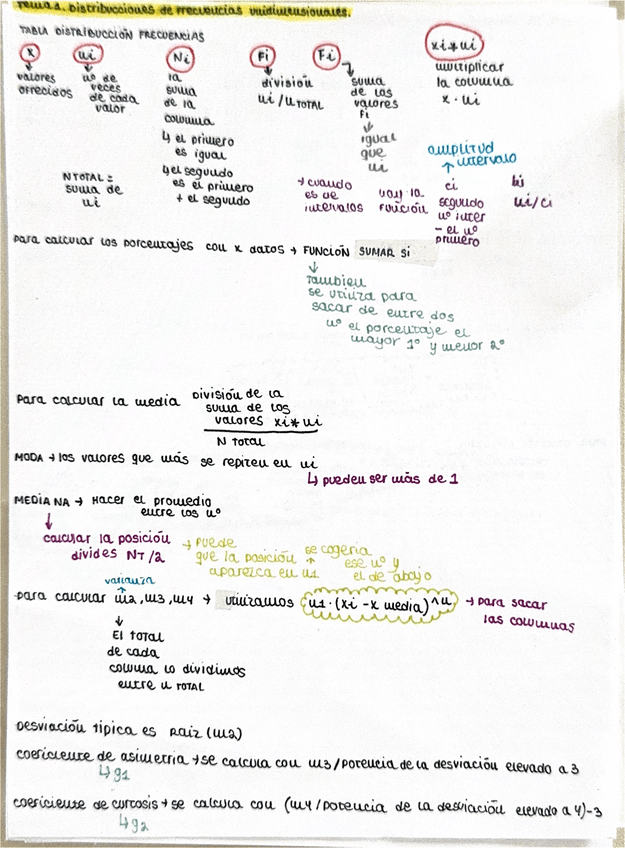 Tema 1. Distribuciones de frecuencias unidimensionales.
TABLA DISTRIBUCCIÓN FRECUENCIAS
x ni Ni fi Fi xi*ni
valores ofrecidos
nº de veces de cada valor
la suma de la columna
↳ el primero es igual
↳ el segundo es el primero + el segundo
división ni/n TOTAL
suma de los valores fi
↓
igual que ni
multiplicar la columna x·ni
N TOTAL = suma de ni
→ cuando es de intervalos
voy la función
amplitud intervalo
↑
ci
segundo nº inter - el nº primero
hi
ni/ci
para calcular los porcentajes con x datos → FUNCIÓN SUMAR SI
↓
también
se utiliza para
sacar de entre dos
nº el porcentaje el
mayor 1º y menor 2º
para calcular la media división de la
suma de los
valores xi*ni
N total
MODA → los valores que más se repiten en ni
↳ pueden ser más de 1
MEDIANA → Hacer el promedio
entre los nº
↓
calcular la posición
divides NT/2
→ puede
que la posición
aparezca en n1
→ se cogería
ese nº y
el de abajo
varianza
↑
para calcular m2, m3, m4 → utilizamos n1·(xi - x media)^n → para sacar
las columnas
↓
El total
de cada
columna lo dividimos
entre n TOTAL
Desviación típica es Raiz (m2)
coeficiente de asimetría → se calcula con m3/potencia de la desviación elevado a 3
↳ g1
coeficiente de curtosis → se calcula con (m4/potencia de la desviación elevado a 4)-3
↳ g2